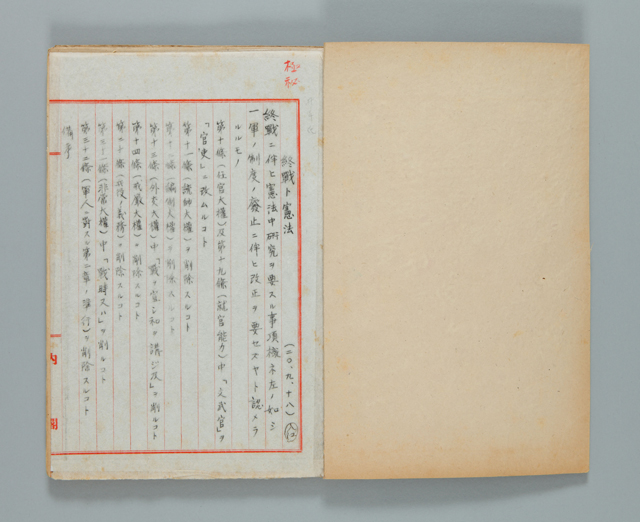 極秘
終戦ト憲法
(二〇、九、十八)
終戦ニ伴ヒ憲法中研究ヲ要スル事項概ネ左ノ如シ
一 軍ノ制度ノ廃止ニ伴ヒ改正ヲ要セズヤト認メラ
ルルモノ
第十條(任官大權)及第十九條(就官能力)中「文武官」ヲ
「官吏」ニ改ムルコト
第十一條(統帥大權)ヲ削除スルコト
第十二條(編制大權)ヲ削除スルコト
第十三條(外交大權)中「戰ヲ宣シ和ヲ講シ及」ヲ削ルコト
第十四條(戒嚴大權)ヲ削除スルコト
第二十條(兵役ノ義務)ヲ削除スルコト
第三十一條(非常大權)中「戰時又ハ」ヲ削ルコト
第三十二條(軍人ニ對スル第二章ノ準行)ヲ削除スルコト
備考
内閣